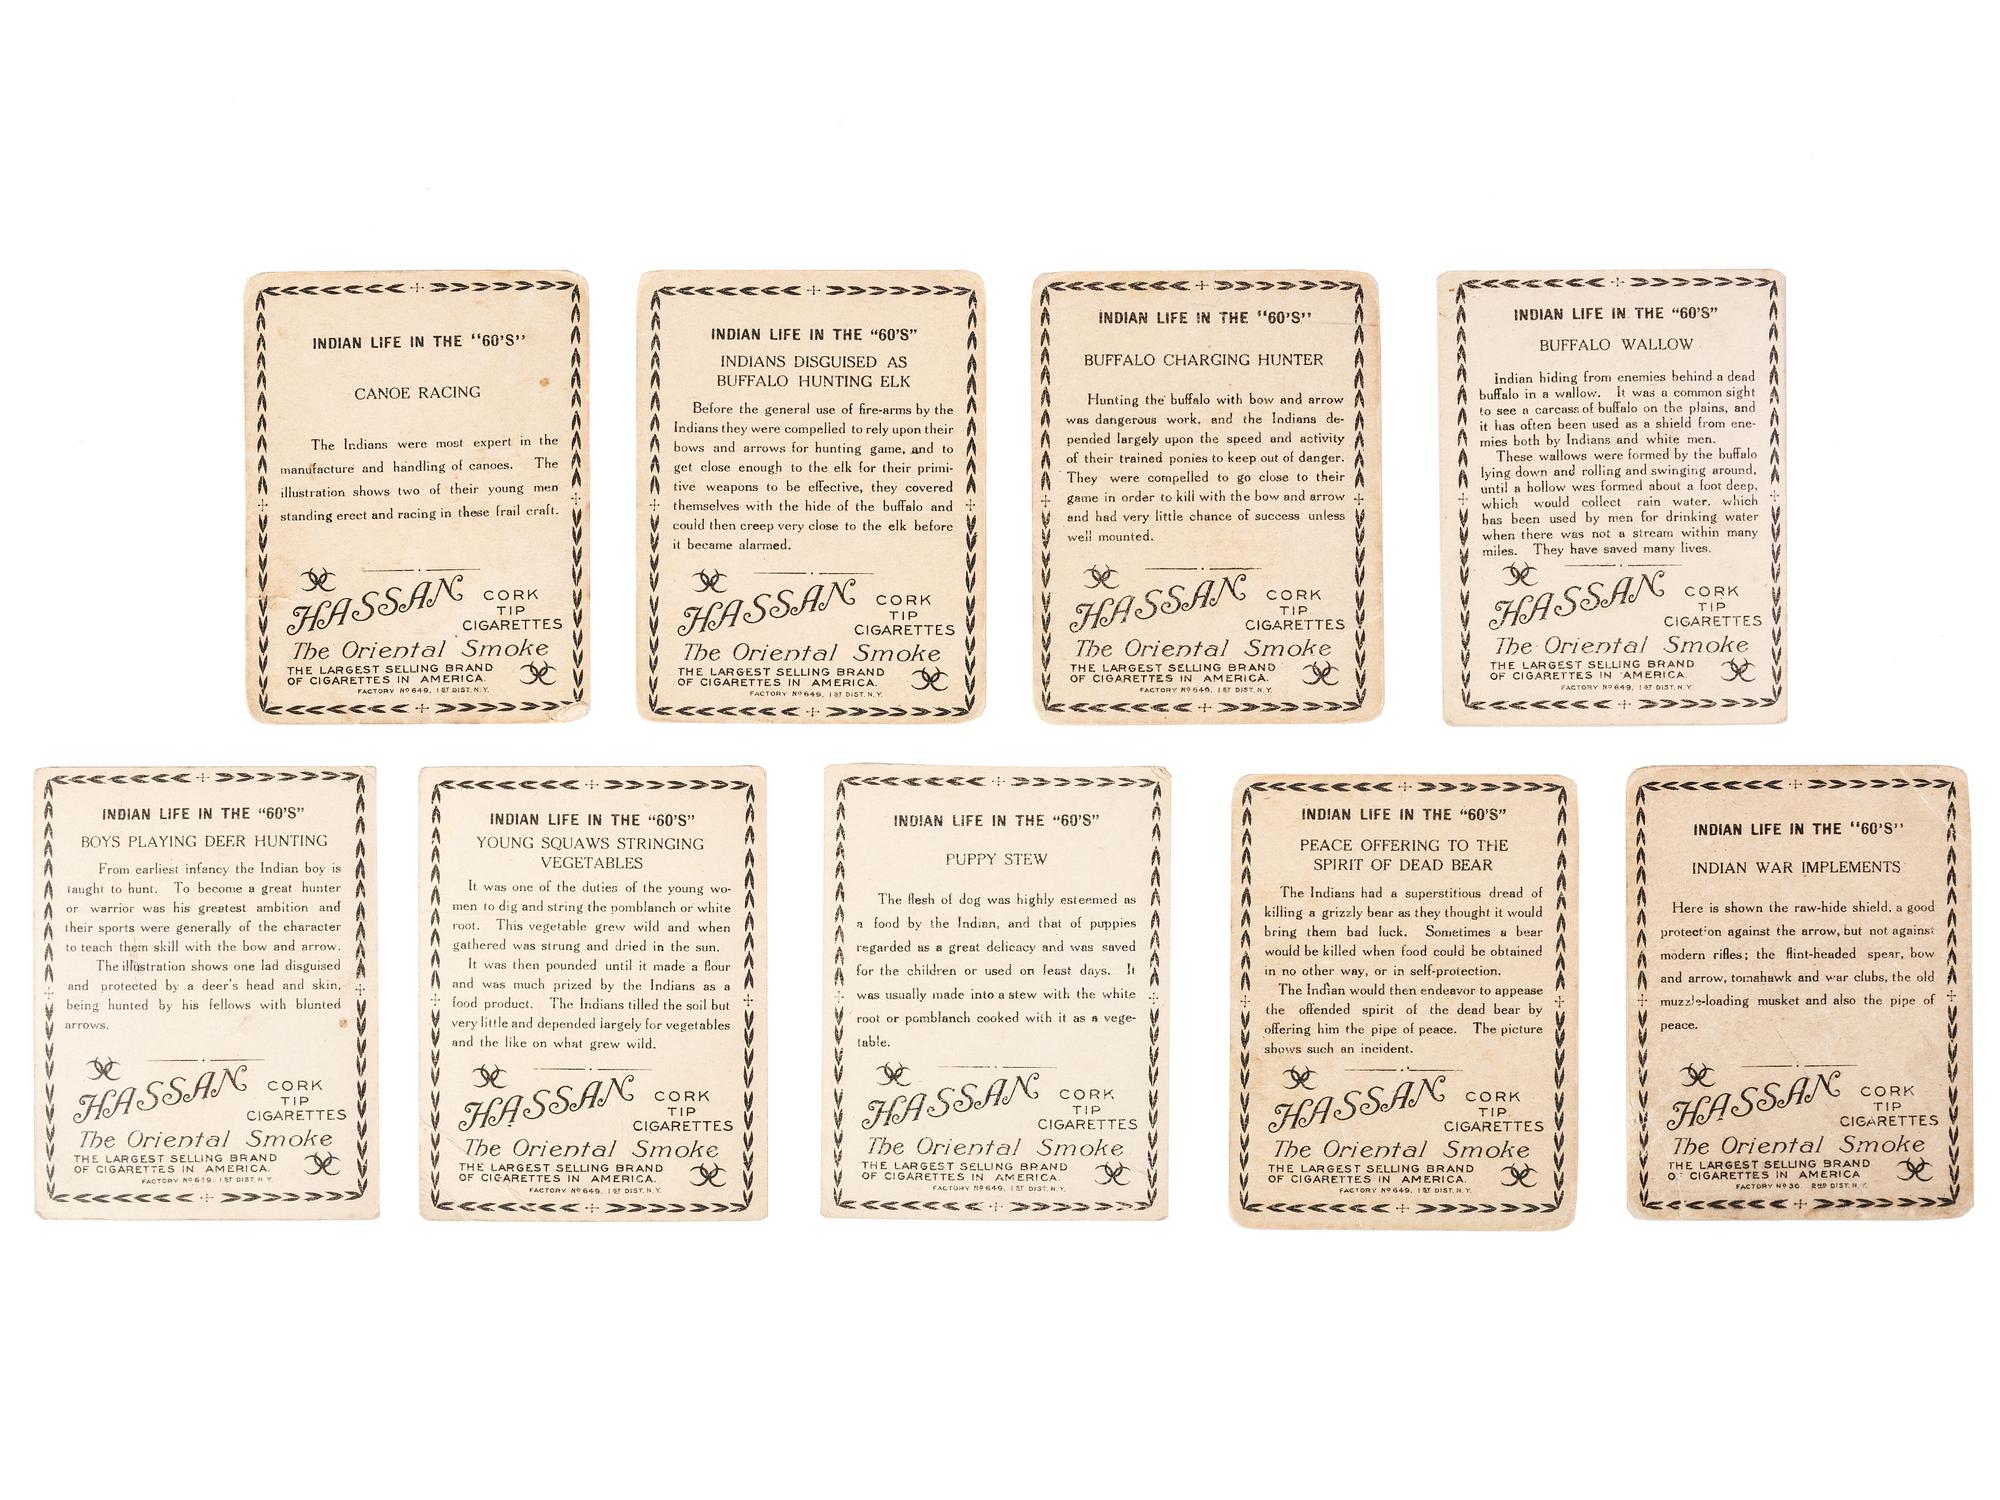 INDIAN LIFE IN THE "60'S"
CANOE RACING
The Indians were most expert in the
manufacture and handling of canoes. The
illustration shows two of their young men
standing erect and racing in these frail craft.
HASSAN
CORK
TIP
CIGARETTES
The Oriental Smoke
THE LARGEST SELLING BRAND
OF CIGARETTES IN AMERICA.
FACTORY Nº 649, 1ST DIST. N.Y.
INDIAN LIFE IN THE "60'S"
INDIANS DISGUISED AS
BUFFALO HUNTING ELK
Before the general use of fire-arms by the
Indians they were compelled to rely upon their
bows and arrows for hunting game, and to
get close enough to the elk for their primi-
tive weapons to be effective, they covered
themselves with the hide of the buffalo and
could then creep very close to the elk before
it became alarmed.
HASSAN
CORK
TIP
CIGARETTES
The Oriental Smoke
THE LARGEST SELLING BRAND
OF CIGARETTES IN AMERICA.
FACTORY Nº 649, 1ST DIST. N.Y.
INDIAN LIFE IN THE "60'S"
BUFFALO CHARGING HUNTER
Hunting the buffalo with bow and arrow
was dangerous work, and the Indians de-
pended largely upon the speed and activity
of their trained ponies to keep out of danger.
They were compelled to go close to their
game in order to kill with the bow and arrow
and had very little chance of success unless
well mounted.
HASSAN
CORK
TIP
CIGARETTES
The Oriental Smoke
THE LARGEST SELLING BRAND
OF CIGARETTES IN AMERICA.
FACTORY Nº 649, 1ST DIST. N.Y.
INDIAN LIFE IN THE "60'S"
BUFFALO WALLOW
Indian hiding from enemies behind a dead
buffalo in a wallow. It was a common sight
to see a carcass of buffalo on the plains, and
it has often been used as a shield from ene-
mies both by Indians and white men.
These wallows were formed by the buffalo
lying down and rolling and swinging around,
until a hollow was formed about a foot deep,
which would collect rain water, which
has been used by men for drinking water
when there was not a stream within many
miles. They have saved many lives.
HASSAN
CORK
TIP
CIGARETTES
The Oriental Smoke
THE LARGEST SELLING BRAND
OF CIGARETTES IN AMERICA.
FACTORY Nº 649, 1ST DIST. N.Y.
INDIAN LIFE IN THE "60'S"
BOYS PLAYING DEER HUNTING
From earliest infancy the Indian boy is
taught to hunt. To become a great hunter
or warrior was his greatest ambition and
their sports were generally of the character
to teach them skill with the bow and arrow.
The illustration shows one lad disguised
and protected by a deer's head and skin,
being hunted by his fellows with blunted
arrows.
HASSAN
CORK
TIP
CIGARETTES
The Oriental Smoke
THE LARGEST SELLING BRAND
OF CIGARETTES IN AMERICA.
FACTORY Nº 649, 1ST DIST. N.Y.
INDIAN LIFE IN THE "60'S"
YOUNG SQUAWS STRINGING
VEGETABLES
It was one of the duties of the young wo-
men to dig and string the pomblanch or white
root. This vegetable grew wild and when
gathered was strung and dried in the sun.
It was then pounded until it made a flour
and was much prized by the Indians as a
food product. The Indians tilled the soil but
very little and depended largely for vegetables
and the like on what grew wild.
HASSAN
CORK
TIP
CIGARETTES
The Oriental Smoke
THE LARGEST SELLING BRAND
OF CIGARETTES IN AMERICA.
FACTORY Nº 649, 1ST DIST. N.Y.
INDIAN LIFE IN THE "60'S"
PUPPY STEW
The flesh of dog was highly esteemed as
a food by the Indian, and that of puppies
regarded as a great delicacy and was saved
for the children or used on feast days. It
was usually made into a stew with the white
root or pomblanch cooked with it as a vege-
table.
HASSAN
CORK
TIP
CIGARETTES
The Oriental Smoke
THE LARGEST SELLING BRAND
OF CIGARETTES IN AMERICA.
FACTORY Nº 649, 1ST DIST. N.Y.
INDIAN LIFE IN THE "60'S"
PEACE OFFERING TO THE
SPIRIT OF DEAD BEAR
The Indians had a superstitious dread of
killing a grizzly bear as they thought it would
bring them bad luck. Sometimes a bear
would be killed when food could be obtained
in no other way, or in self-protection.
The Indian would then endeavor to appease
the offended spirit of the dead bear by
offering him the pipe of peace. The picture
shows such an incident.
HASSAN
CORK
TIP
CIGARETTES
The Oriental Smoke
THE LARGEST SELLING BRAND
OF CIGARETTES IN AMERICA.
FACTORY Nº 649, 1ST DIST. N.Y.
INDIAN LIFE IN THE "60'S"
INDIAN WAR IMPLEMENTS
Here is shown the raw-hide shield, a good
protection against the arrow, but not against
modern rifles; the flint-headed spear, bow
and arrow, tomahawk and war clubs, the old
muzzle-loading musket and also the pipe of
peace.
HASSAN
CORK
TIP
CIGARETTES
The Oriental Smoke
THE LARGEST SELLING BRAND
OF CIGARETTES IN AMERICA
FACTORY Nº 30, 2ND DIST. N.Y.